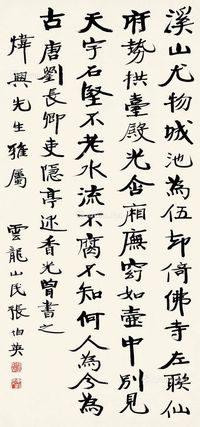 溪山尤物城池為伍却倚佛寺左聯仙
府勢拱臺殿光含廂廡窈如壺中別見
天宇石堅不老水流不腐不知何人為今為
古唐劉長卿吏隱亭述香光曾書之
煒興先生雅屬
雲龍山民張伯英